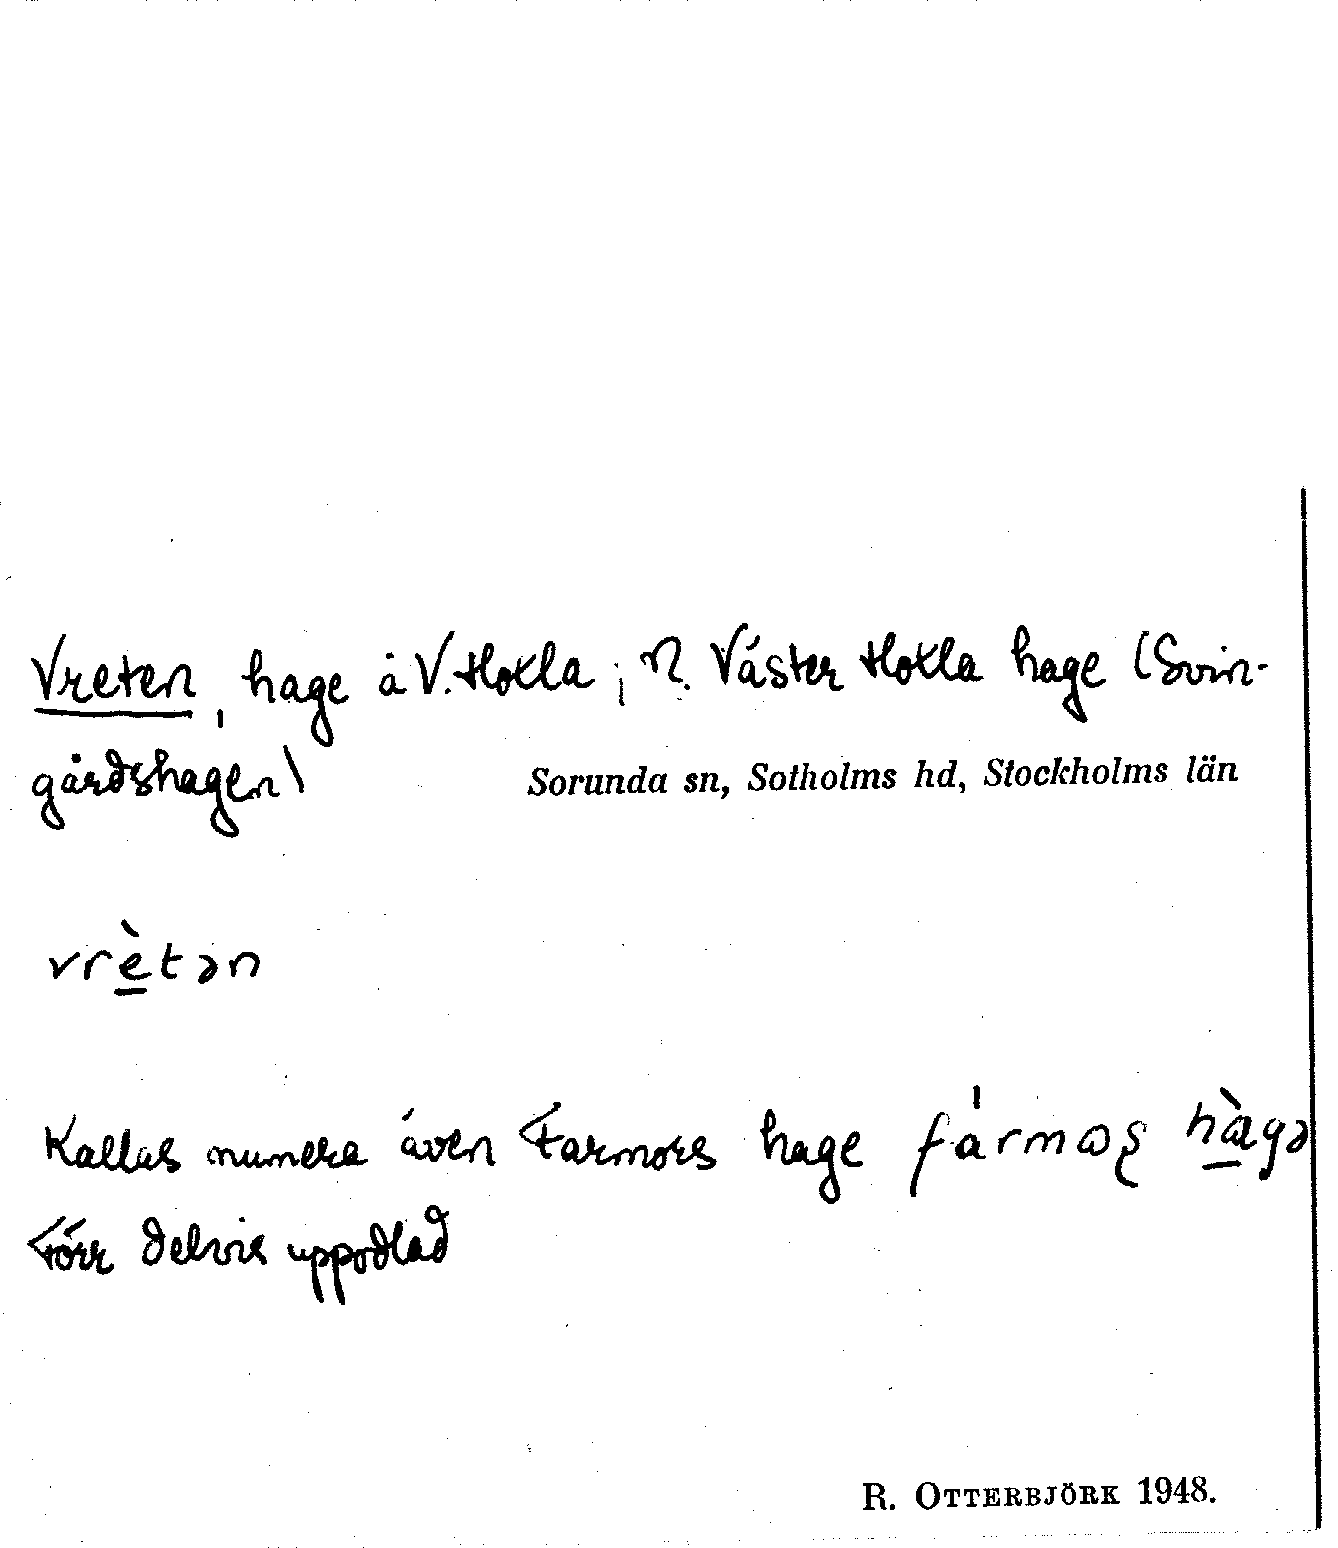 Vreten, hage å V. Hokla; n. Väster Hokla hage (Svin-
gårdshagen)
Sorunda sn, Sotholms hd, Stockholms län
vrètən
Kallas numera även Farmors hage fármoʂ hàgə
Förr delvis uppodlad
R. OTTERBJÖRK 1948.